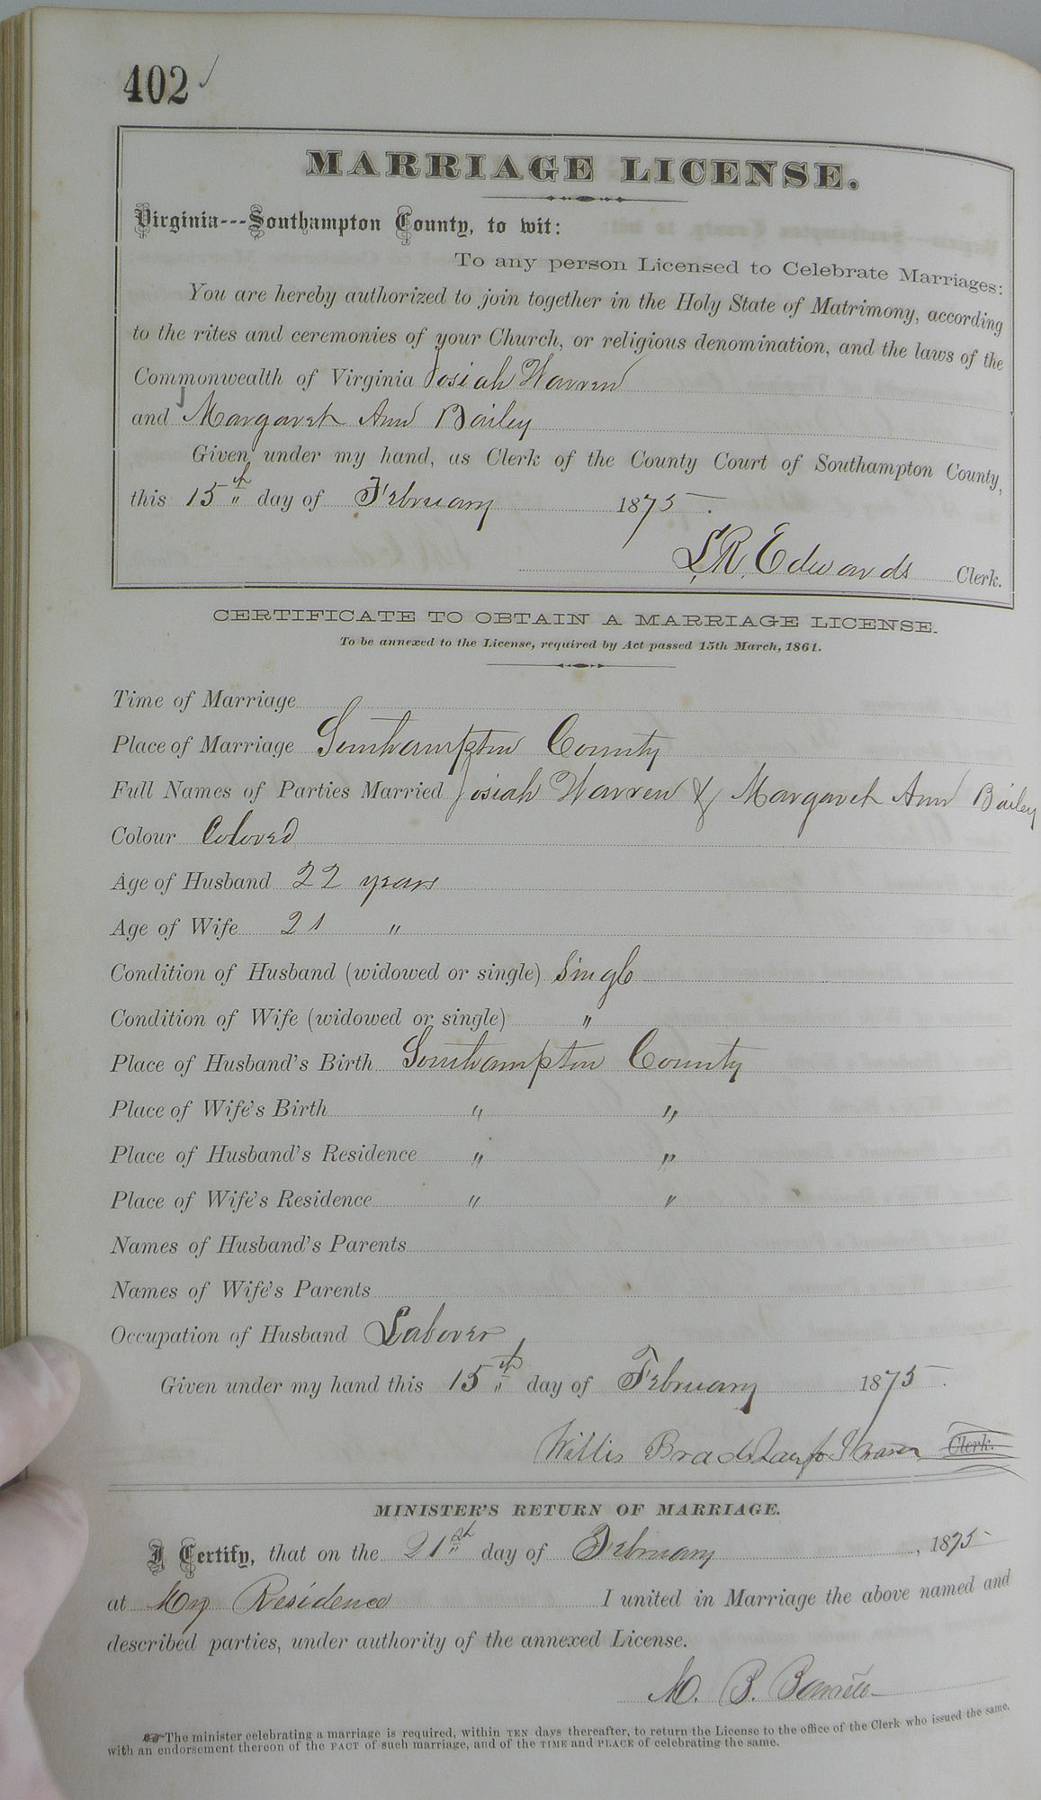 402
MARRIAGE LICENSE.
Virginia---Southampton County, to wit:
To any person Licensed to Celebrate Marriages:
You are hereby authorized to join together in the Holy State of Matrimony, according
to the rites and ceremonies of your Church, or religious denomination, and the laws of the
Commonwealth of Virginia Josiah Warren
and Margaret Ann Bailey
Given under my hand, as Clerk of the County Court of Southampton County,
this 15th day of February 1875.
L. R. Edwards Clerk.
CERTIFICATE TO OBTAIN A MARRIAGE LICENSE.
To be annexed to the License, required by Act passed 15th March, 1861.
Time of Marriage
Place of Marriage Southampton County
Full Names of Parties Married Josiah Warren & Margaret Ann Bailey
Colour Colored
Age of Husband 22 years
Age of Wife 21 "
Condition of Husband (widowed or single) Single
Condition of Wife (widowed or single) "
Place of Husband's Birth Southampton County
Place of Wife's Birth " "
Place of Husband's Residence " "
Place of Wife's Residence " "
Names of Husband's Parents
Names of Wife's Parents
Occupation of Husband Laborer
Given under my hand this 15th day of February 1875.
Willis Clerk.
MINISTER'S RETURN OF MARRIAGE.
I Certify, that on the 21st day of February, 1875
at My Residence I united in Marriage the above named and
described parties, under authority of the annexed License.
M. B. Barrett
The minister celebrating a marriage is required, within TEN days thereafter, to return the License to the office of the Clerk who issued the same,
with an endorsement thereon of the FACT of such marriage, and of the TIME and PLACE of celebrating the same.